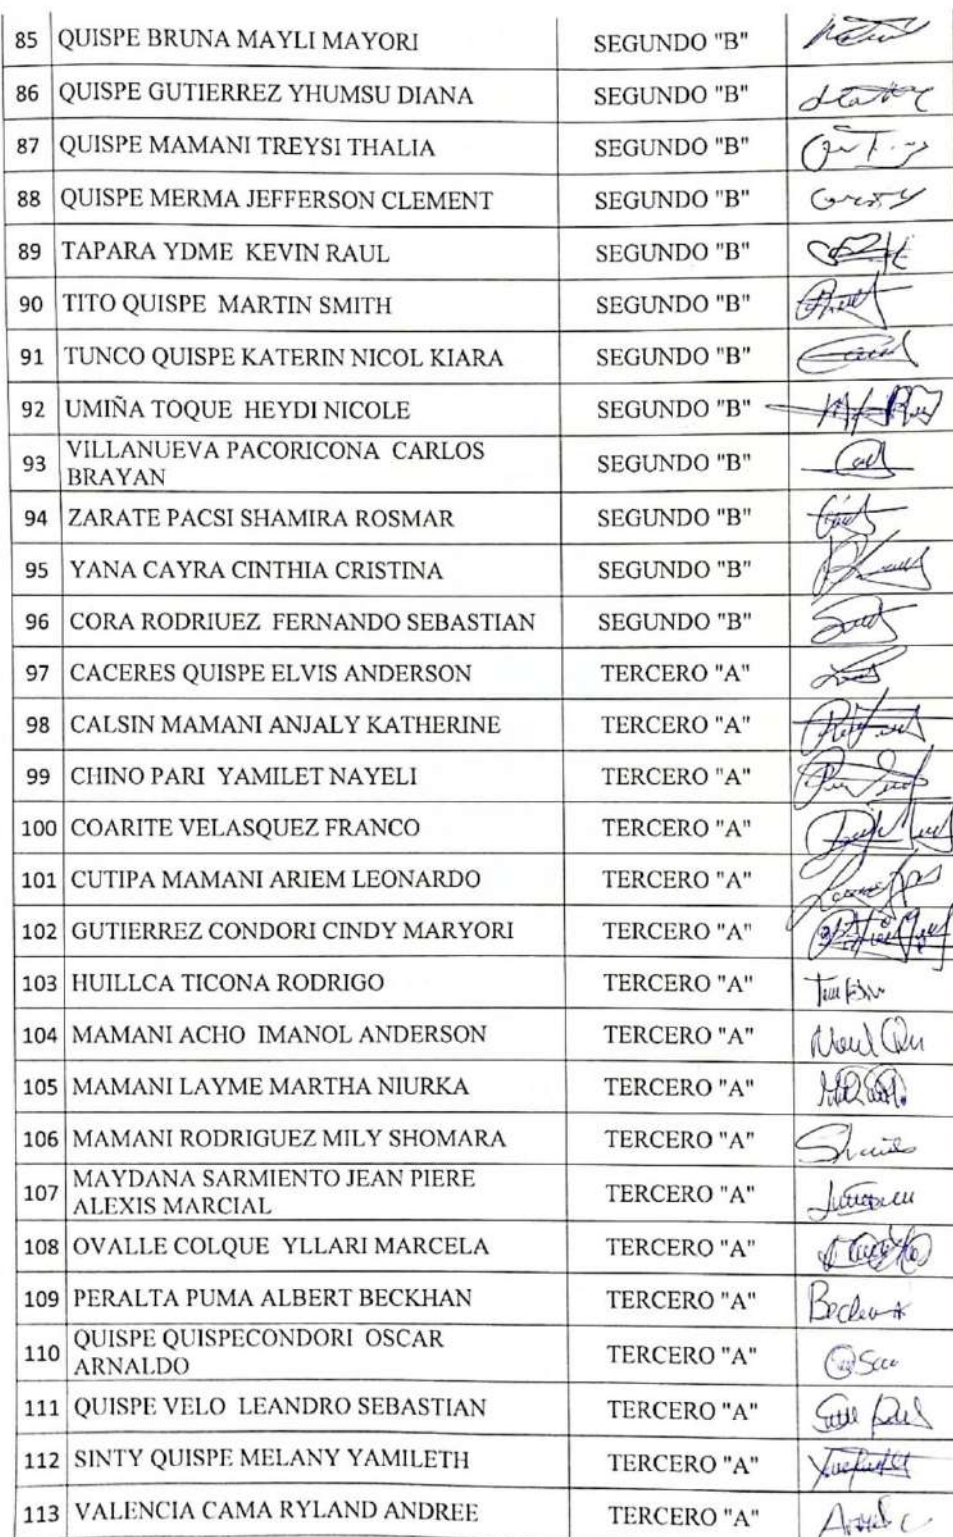 85 QUISPE BRUNA MAYLI MAYORI SEGUNDO "B"
86 QUISPE GUTIERREZ YHUMSU DIANA SEGUNDO "B"
87 QUISPE MAMANI TREYSI THALIA SEGUNDO "B"
88 QUISPE MERMA JEFFERSON CLEMENT SEGUNDO "B"
89 TAPARA YDME KEVIN RAUL SEGUNDO "B"
90 TITO QUISPE MARTIN SMITH SEGUNDO "B"
91 TUNCO QUISPE KATERIN NICOL KIARA SEGUNDO "B"
92 UMIÑA TOQUE HEYDI NICOLE SEGUNDO "B"
93 VILLANUEVA PACORICONA CARLOS SEGUNDO "B"
BRAYAN
94 ZARATE PACSI SHAMIRA ROSMAR SEGUNDO "B"
95 YANA CAYRA CINTHIA CRISTINA SEGUNDO "B"
96 CORA RODRIUEZ FERNANDO SEBASTIAN SEGUNDO "B"
97 CACERES QUISPE ELVIS ANDERSON TERCERO "A"
98 CALSIN MAMANI ANJALY KATHERINE TERCERO "A"
99 CHINO PARI YAMILET NAYELI TERCERO "A"
100 COARITE VELASQUEZ FRANCO TERCERO "A"
101 CUTIPA MAMANI ARIEM LEONARDO TERCERO "A"
102 GUTIERREZ CONDORI CINDY MARYORI TERCERO "A"
103 HUILLCA TICONA RODRIGO TERCERO "A"
104 MAMANI ACHO IMANOL ANDERSON TERCERO "A"
105 MAMANI LAYME MARTHA NIURKA TERCERO "A"
106 MAMANI RODRIGUEZ MILY SHOMARA TERCERO "A"
107 MAYDANA SARMIENTO JEAN PIERE TERCERO "A"
ALEXIS MARCIAL
108 OVALLE COLQUE YLLARI MARCELA TERCERO "A"
109 PERALTA PUMA ALBERT BECKHAN TERCERO "A"
110 QUISPE QUISPECONDORI OSCAR TERCERO "A"
ARNALDO
111 QUISPE VELO LEANDRO SEBASTIAN TERCERO "A"
112 SINTY QUISPE MELANY YAMILETH TERCERO "A"
113 VALENCIA CAMA RYLAND ANDREE TERCERO "A"